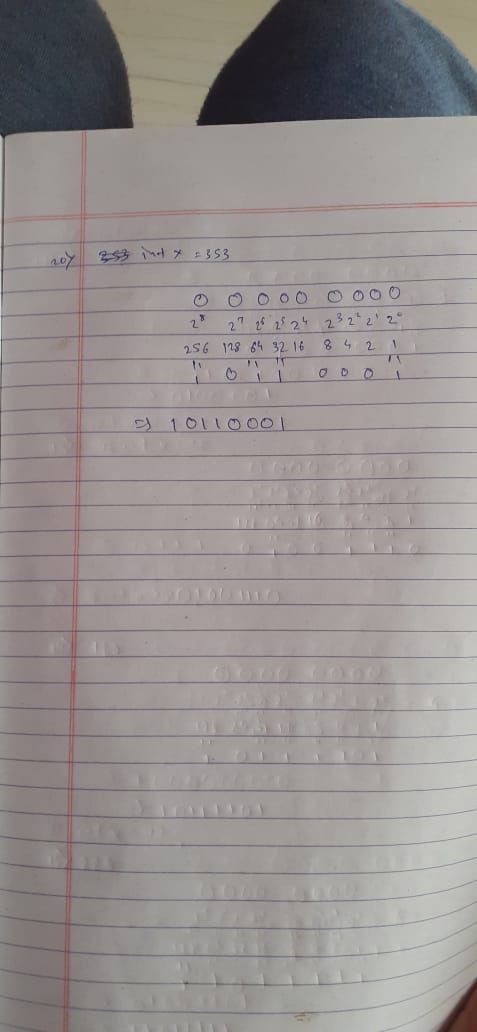 20) 353 int x = 353
0 0 0 0 0 0 0 0 0
2⁸ 2⁷ 2⁶ 2⁵ 2⁴ 2³ 2² 2¹ 2⁰
256 128 64 32 16 8 4 2 1
1 0 1 1 0 0 0 1
⇒ 10110001